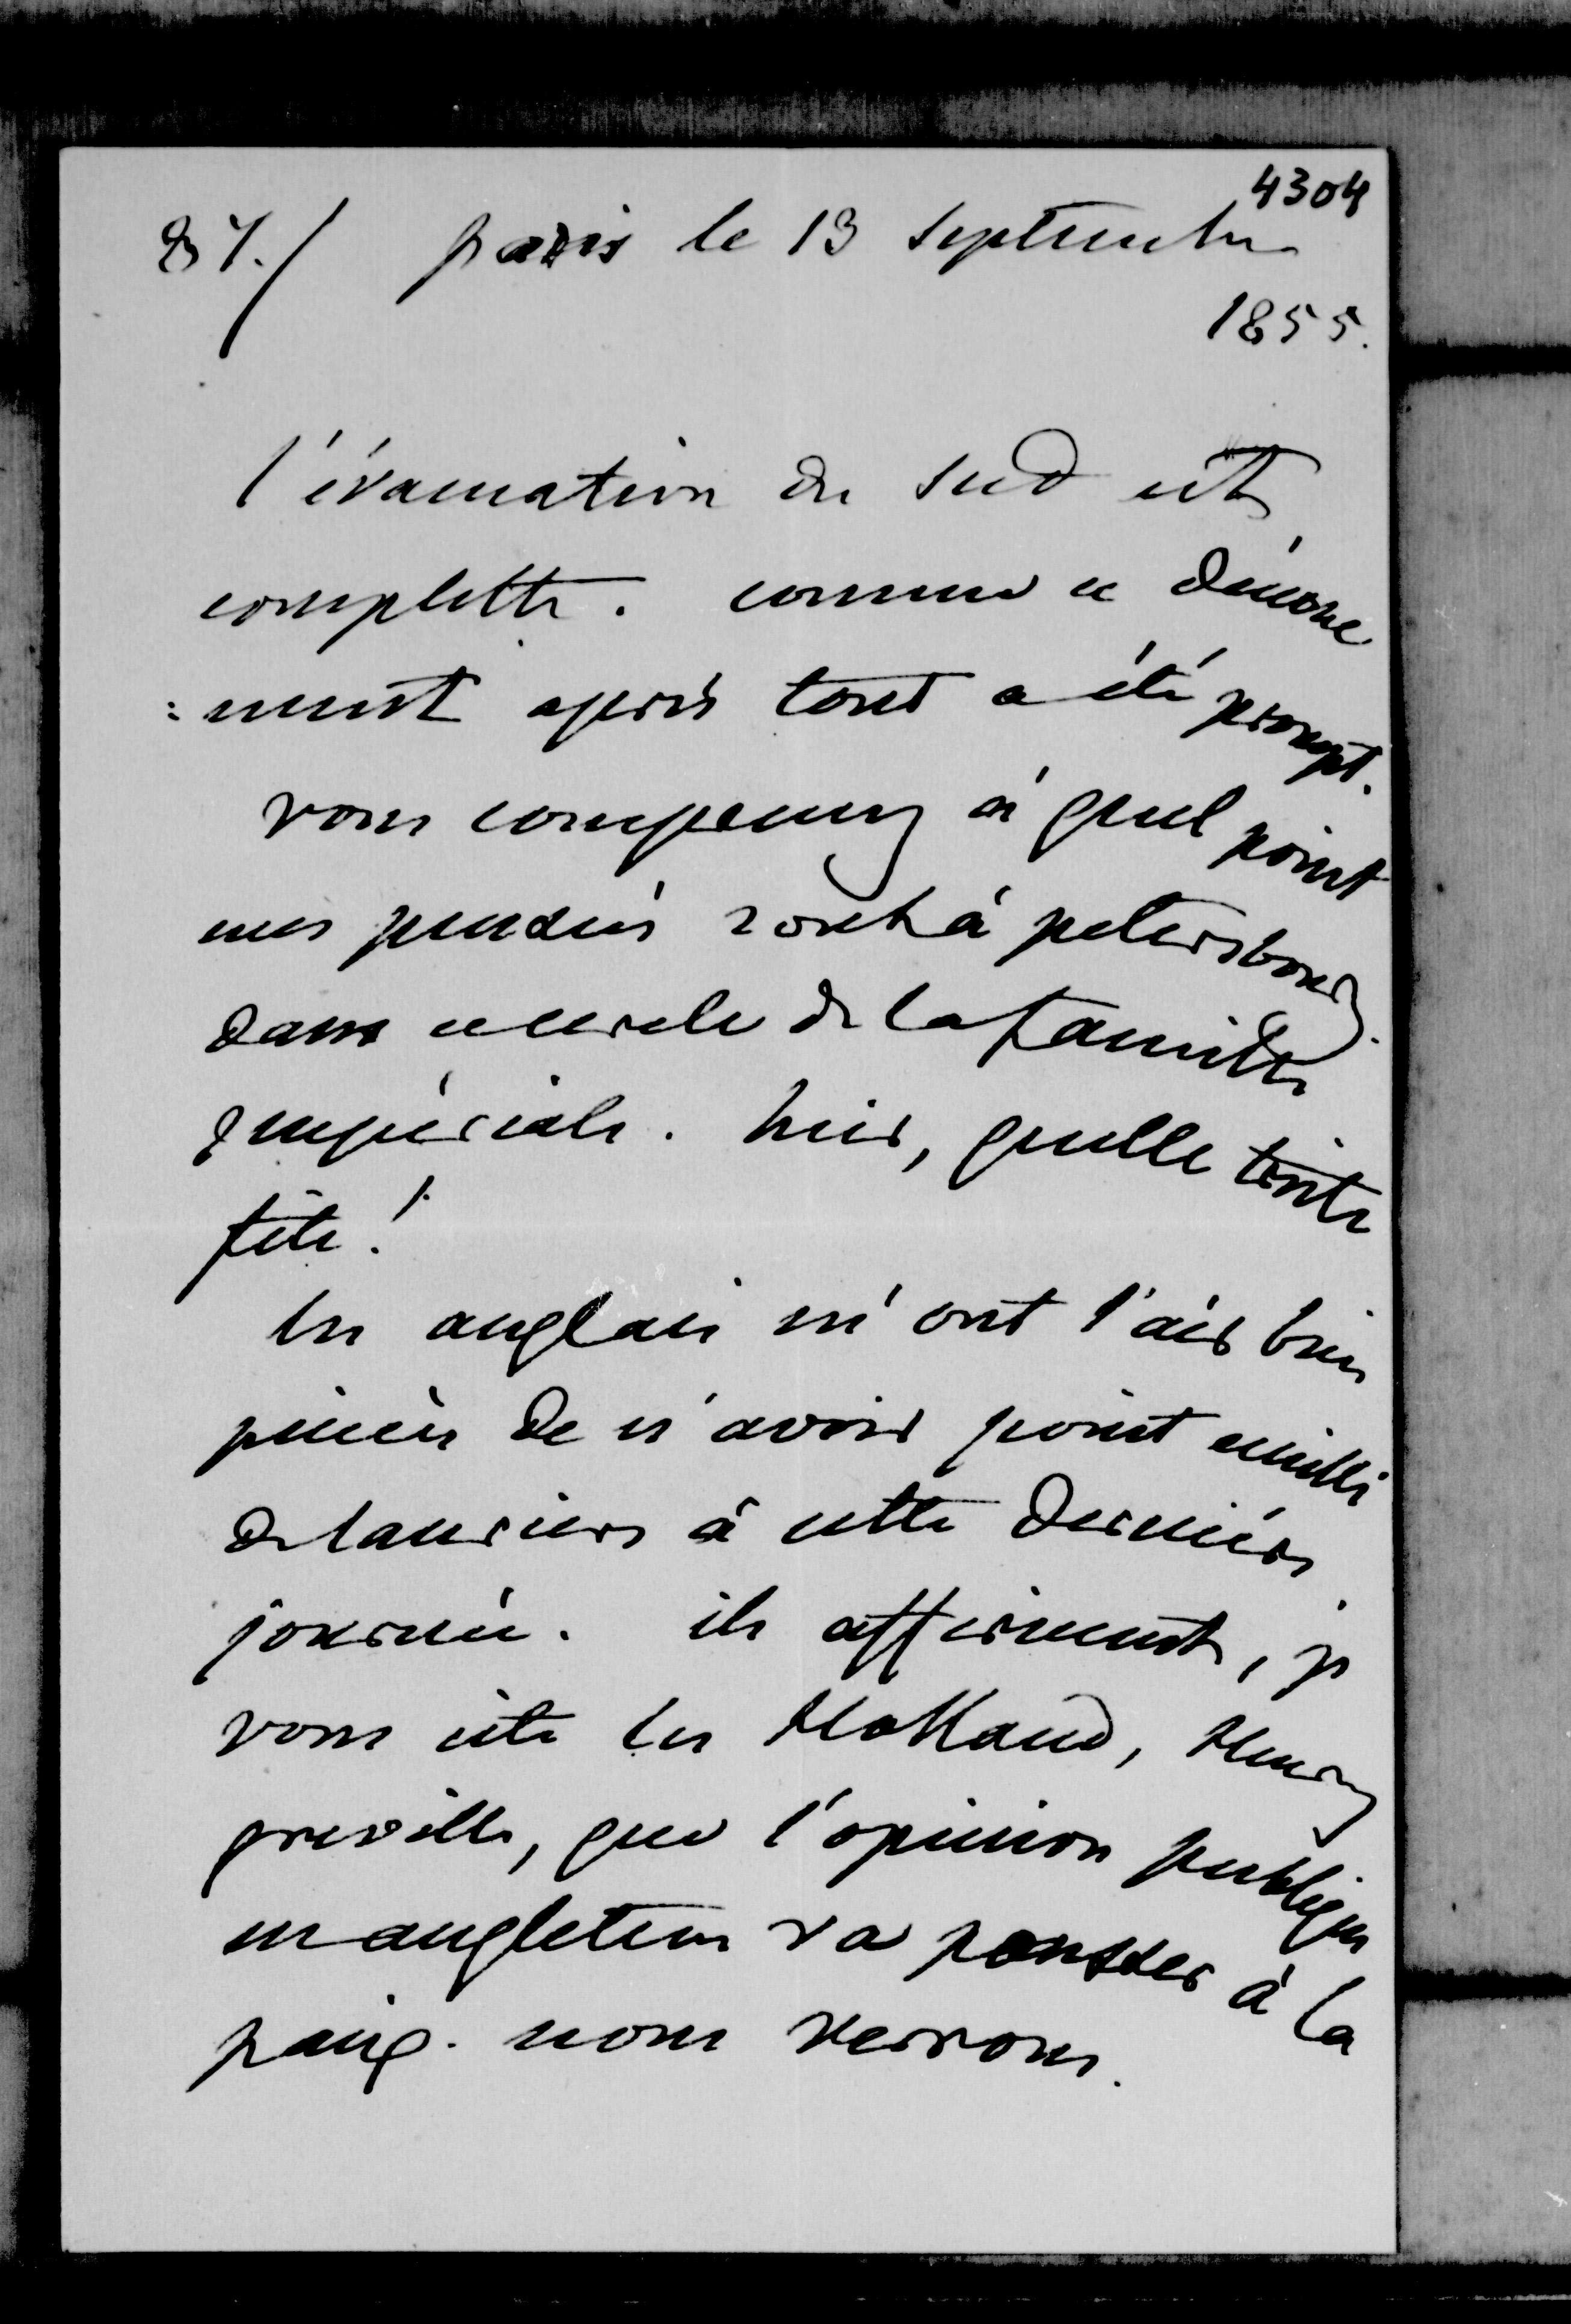 4304
87./ paris le 13 septembre
1855.
l'évacuation du sud est
complette. comme ce dénoue
=ment après tout a été prompt.
vous comprenez à quel point
mes pensées sont à petersbourg.
dans ce cercle de la famille
impériale. hier, quelle triste
fête !
les anglais m'ont l'air bien
pincés de n'avoir point cueilli
de lauriers à cette dernière
journée. ils affirment, je
vous cite les Holland, Henry
greville, que l'opinion publique
en angleterre va pousser à la
paix. nous verrons.